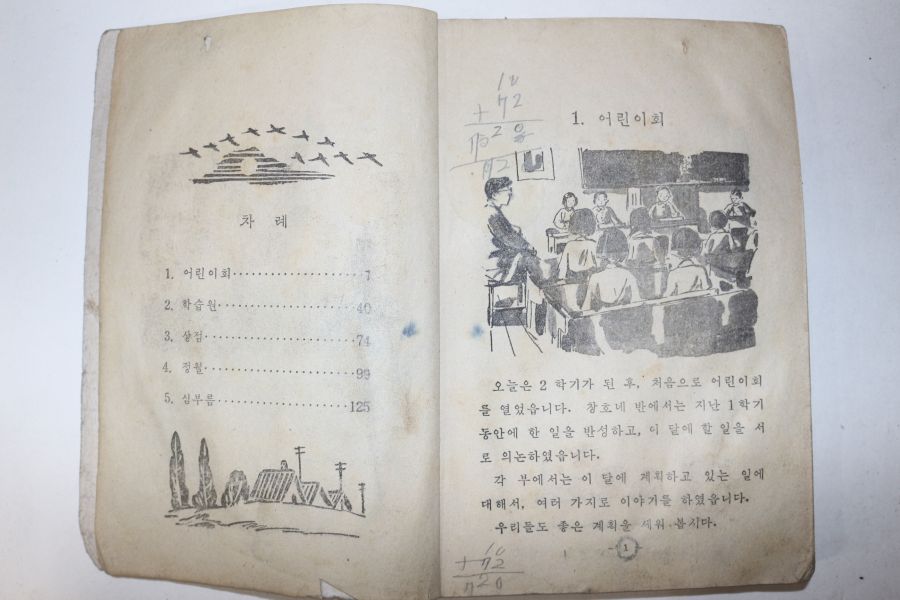 차 례
1. 어린이회··················7
2. 학습원··················40
3. 상점··················74
4. 정월··················99
5. 심부름··················125
10
+72
720
1. 어린이회
오늘은 2 학기가 된 후, 처음으로 어린이회
를 열었읍니다. 창호네 반에서는 지난 1 학기
동안에 한 일을 반성하고, 이 달에 할 일을 서
로 의논하였읍니다.
각 부에서는 이 달에 계획하고 있는 일에
대해서, 여러 가지로 이야기를 하였읍니다.
우리들도 좋은 계획을 세워 봅시다.
1
10
+72
720